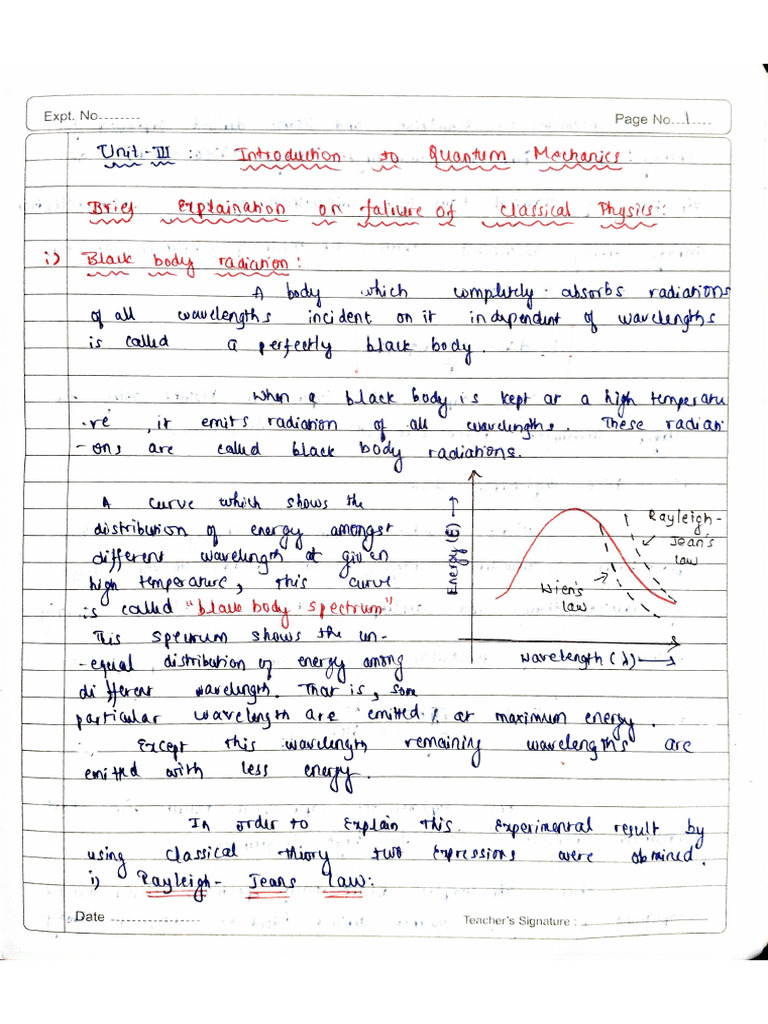 Expt. No........
Page No...1....
Unit-III : Introduction to Quantum Mechanics:
Brief Explaination on failure of Classical Physics:
i) Black body radiation:
A body which completely absorbs radiations
of all wavelengths incident on it independent of wavelengths
is called a perfectly black body.
When a black body is kept at a high temperatu
-re, it emits radiation of all wavelengths. These radiati
-ons are called black body radiations.
A curve which shows the
distribution of energy amongst
different wavelength at given
high temperature, this curve
is called "black body spectrum"
This spectrum shows the un-
-equal distribution of energy among
different wavelength. That is, some
Energy (E) →
Rayleigh-
Jean's
law
Wien's
law
wavelength (λ) →
particular wavelength are emitted at maximum energy.
Except this wavelength remaining wavelengths are
emitted with less energy.
In order to explain this experimental result by
using classical theory two expressions were obtained.
i) Rayleigh- Jeans Law:
Date ..................
Teacher's Signature :